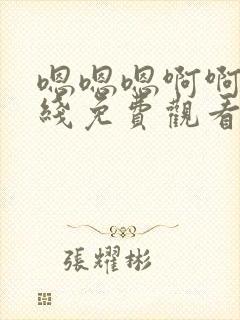 嗯嗯嗯啊啊
綫免費觀看
張耀彬